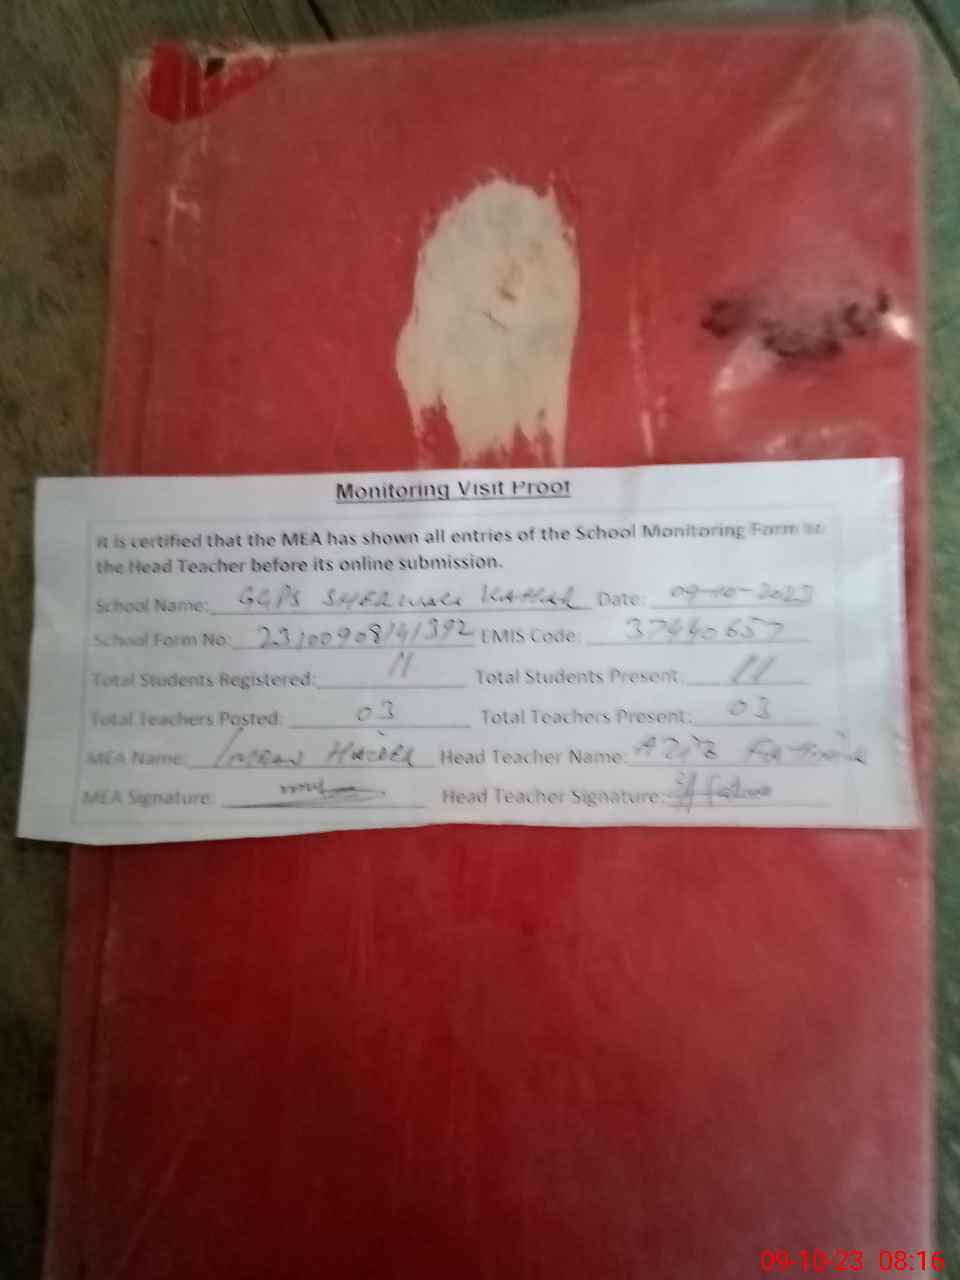 Monitoring Visit Proof
It is certified that the MEA has shown all entries of the School Monitoring Form to
the Head Teacher before its online submission.
School Name: GGPS Date: 09-10-2023
School Form No: EMIS Code: 37440657
Total Students Registered: 11 Total Students Present: 11
Total Teachers Posted: 03 Total Teachers Present: 03
MEA Name: Imran Head Teacher Name:
MEA Signature: Head Teacher Signature:
09-10-23 08:16